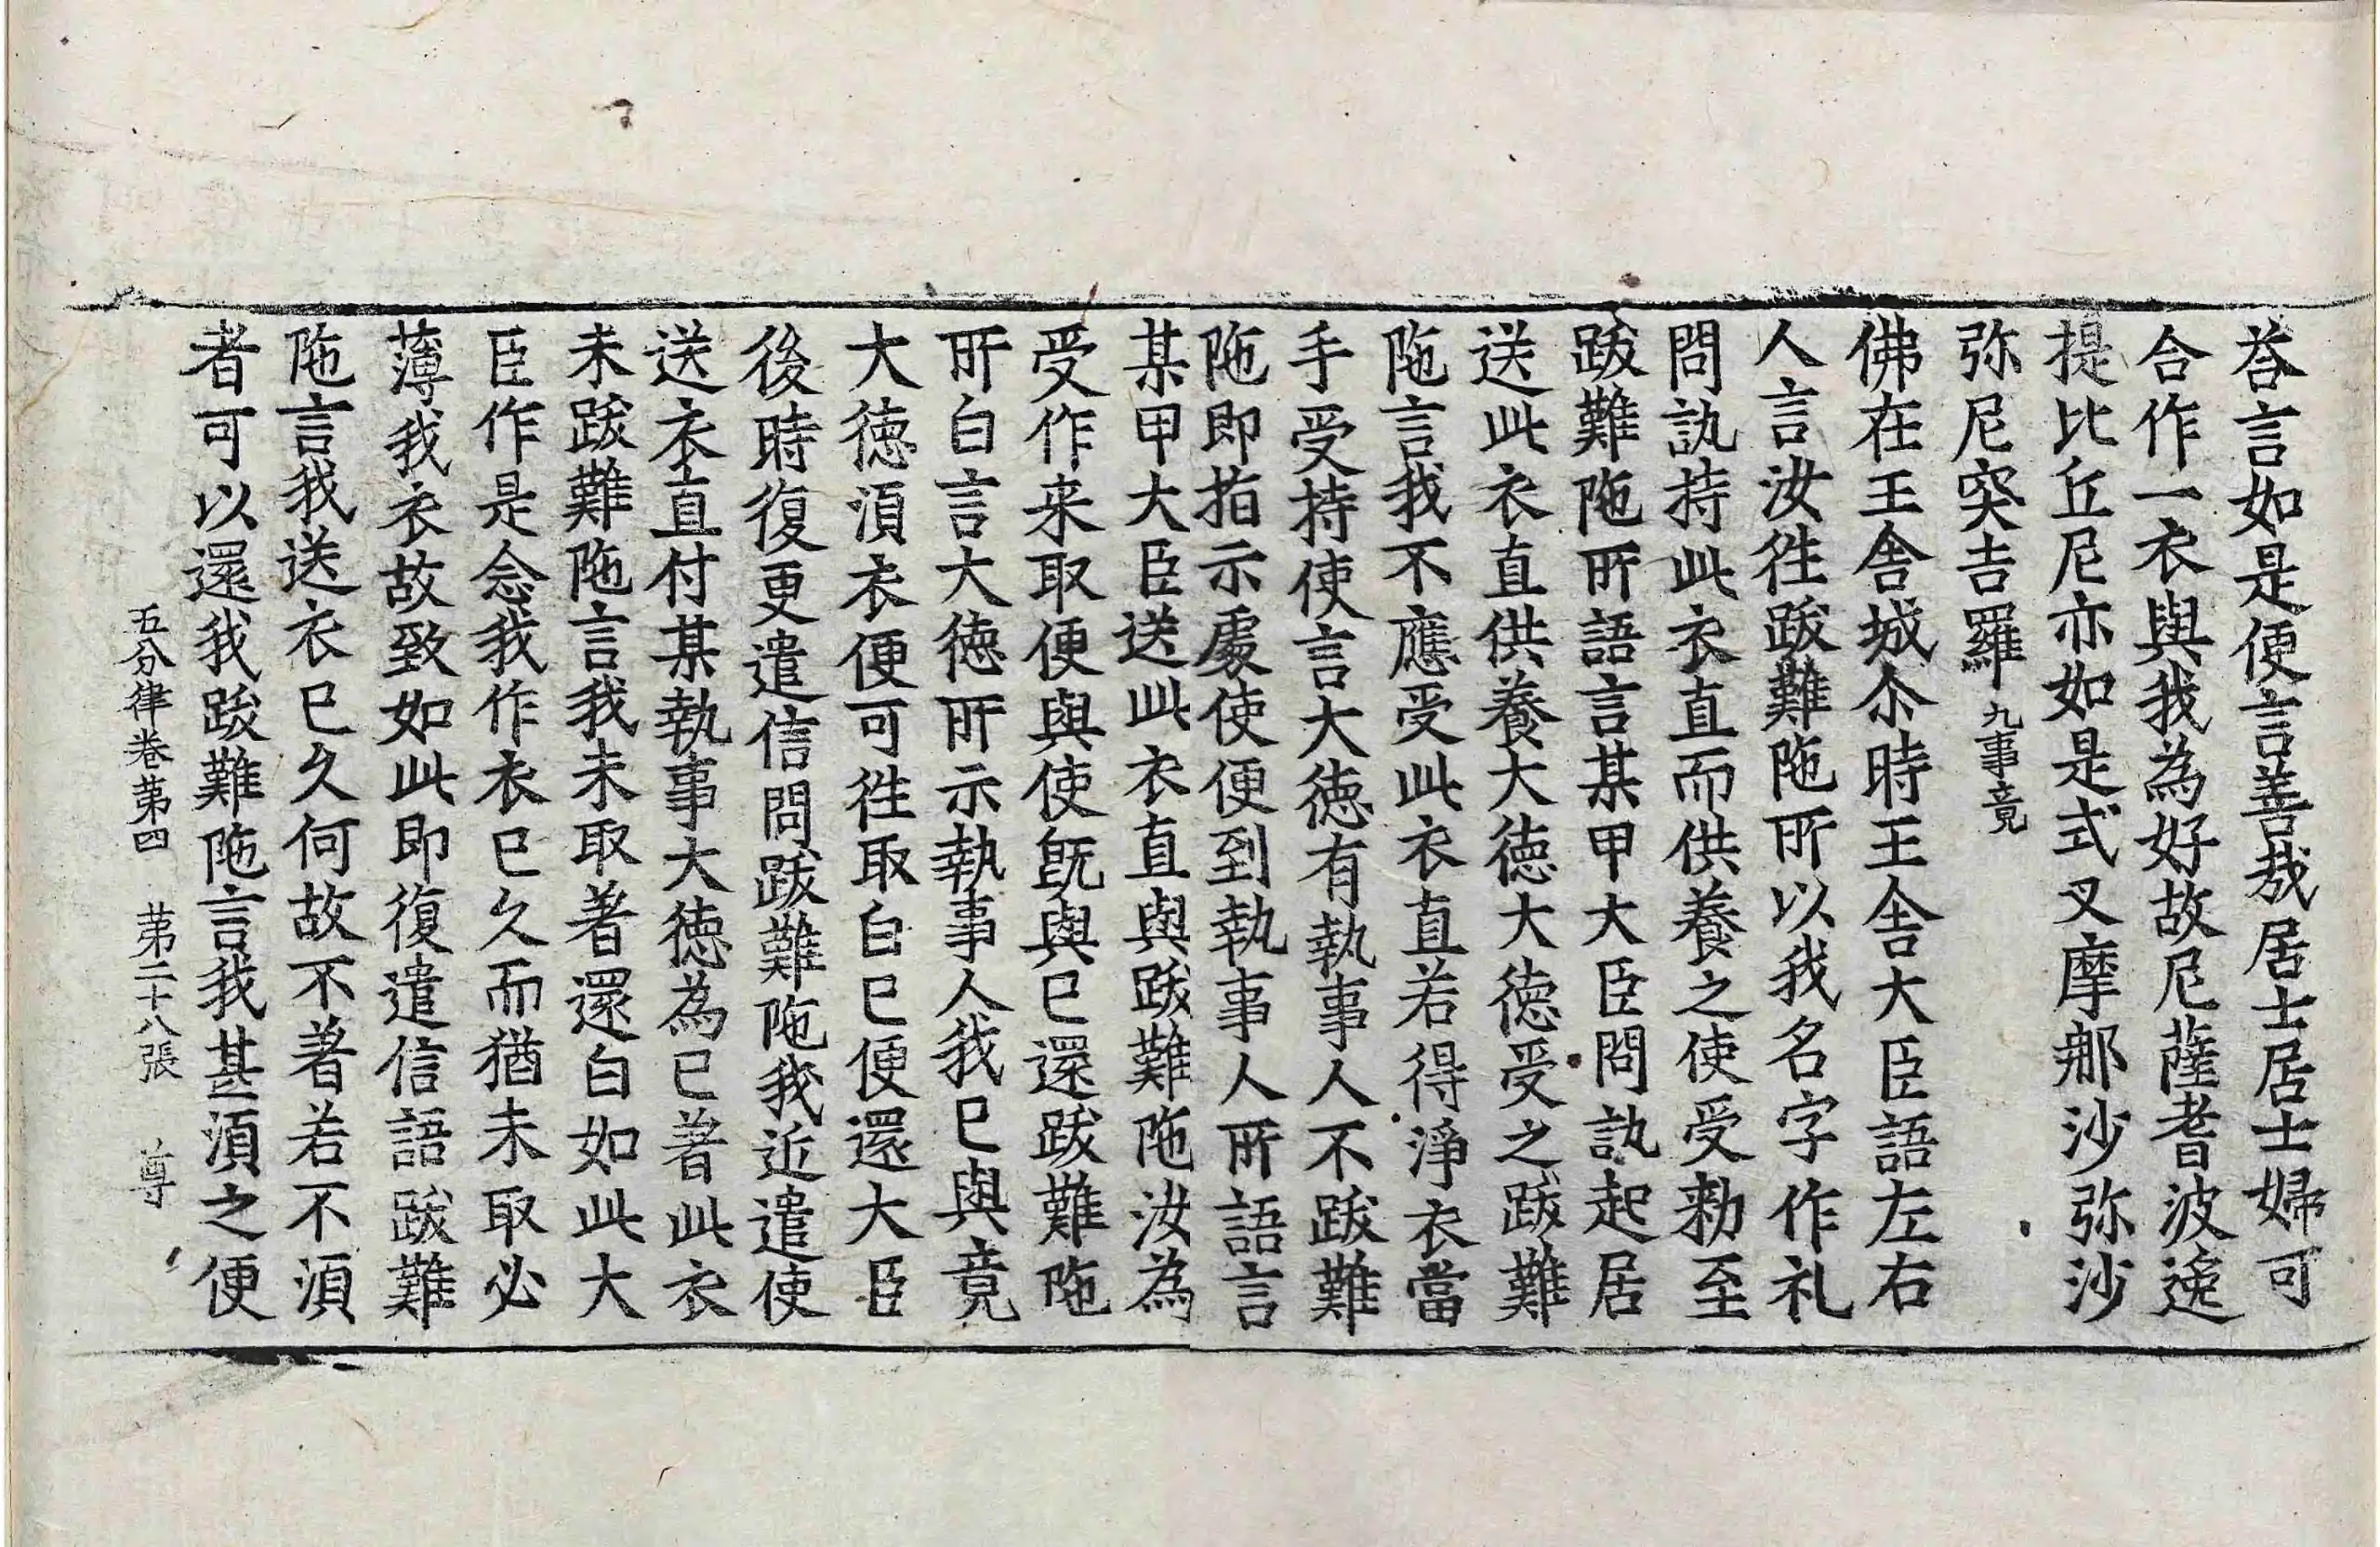 荅言如是便言善㢤居士居士婦可
合作一衣與我為好故尼薩耆波逸
提比丘尼亦如是式叉摩那沙弥沙
弥尼突吉羅九事竟
佛在王舍城尒時王舍大臣語左右
人言汝徃跋難陁所以我名字作礼
問訊持此衣直而供養之使受勑至
跋難陁所語言某甲大臣問訊起居
送此衣直供養大徳大徳受之跋難
陁言我不應受此衣直若得淨衣當
手受持使言大徳有執事人不跋難
陁即指示處使便到執事人所語言
某甲大臣送此衣直與跋難陁汝為
受作来取便與使既與已還跋難陁
所白言大徳所示執事人我已與竟
大徳湏衣便可徃取白已便還大臣
後時復更遣信問跋難陁我近遣使
送衣直付某執事大徳為已著此衣
未跋難陁言我未取著還白如此大
臣作是念我作衣已久而猶未取必
薄我衣故致如此即復遣信語跋難
陁言我送衣已久何故不著若不湏
者可以還我跋難陁言我甚湏之便
五分律卷苐四 苐二十八張 尊